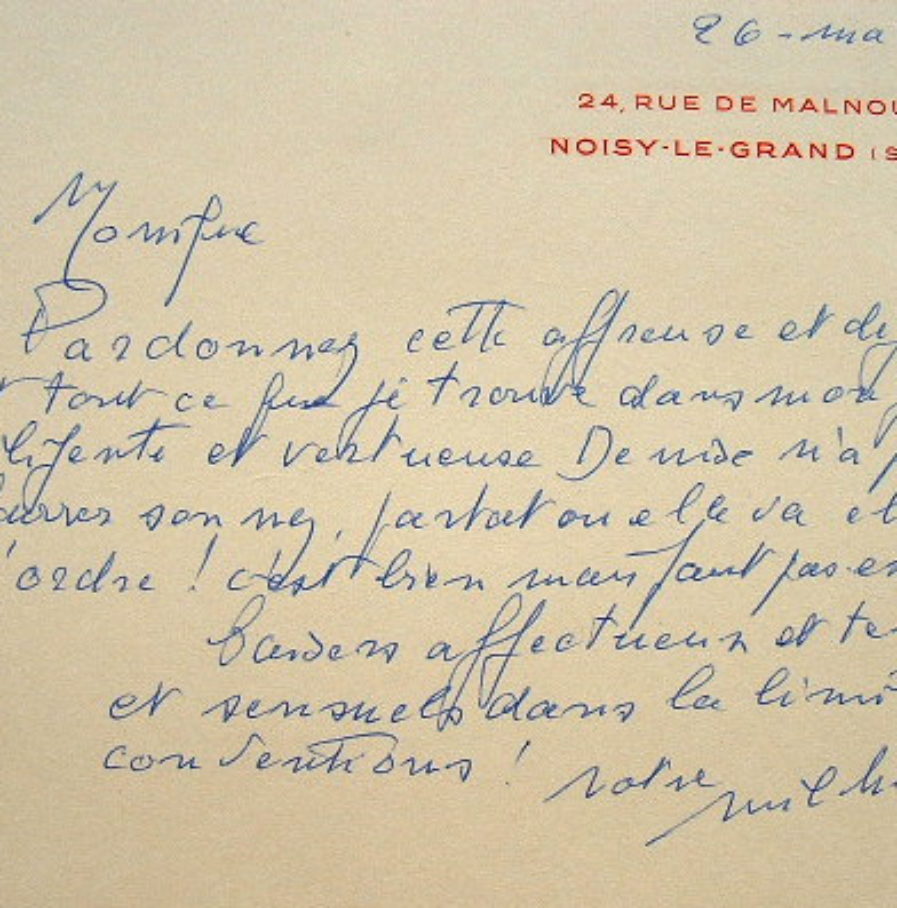 26 - ma
24, RUE DE MALNOU
NOISY-LE-GRAND (S
Monique
Pardonnez cette affreuse et de
tout ce que je trouve dans mon
ligente et vertueuse Denise n'a p
ourrer son nez, partout ou elle va el
'ordre ! c'est bien mais faut pas e
Baisers affectueux et te
et sensuels dans la limi
conventions !
votre